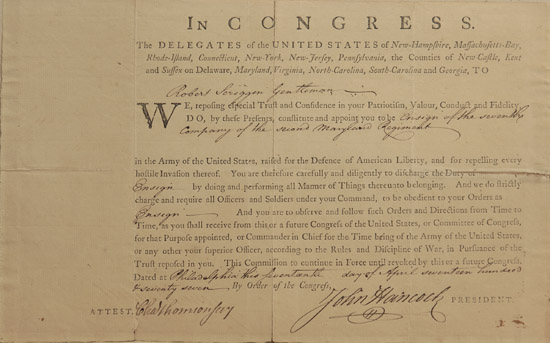 IN CONGRESS.
The DELEGATES of the UNITED STATES of New-Hampshire, Massachusetts-Bay,
Rhode-Island, Connecticut, New-York, New-Jersey, Pennsylvania, the Counties of New-Castle, Kent
and Sussex on Delaware, Maryland, Virginia, North-Carolina, South-Carolina and Georgia, TO
Robert Scriggen Gentleman
WE, reposing especial Trust and Confidence in your Patriotism, Valour, Conduct and Fidelity
DO, by these Presents, constitute and appoint you to be Ensign of the seventh
Company of the second Maryland Regiment
in the Army of the United States, raised for the Defence of American Liberty, and for repelling every
hostile Invasion thereof. You are therefore carefully and diligently to discharge the Duty of
Ensign by doing and performing all Manner of Things thereunto belonging. And we do strictly
charge and require all Officers and Soldiers under your Command, to be obedient to your Orders as
Ensign And you are to observe and follow such Orders and Directions from Time to
Time, as you shall receive from this or a future Congress of the United States, or Committee of Congress,
for that Purpose appointed, or Commander in Chief for the Time being of the Army of the United States,
or any other your superior Officer, according to the Rules and Discipline of War, in Pursuance of the
Trust reposed in you. This Commission to continue in Force until revoked by this or a future Congress.
Dated at Philadelphia this seventeenth day of April seventeen hundred
& seventy seven. By Order of the Congress,
John Hancock PRESIDENT.
ATTEST. Cha Thomson secy